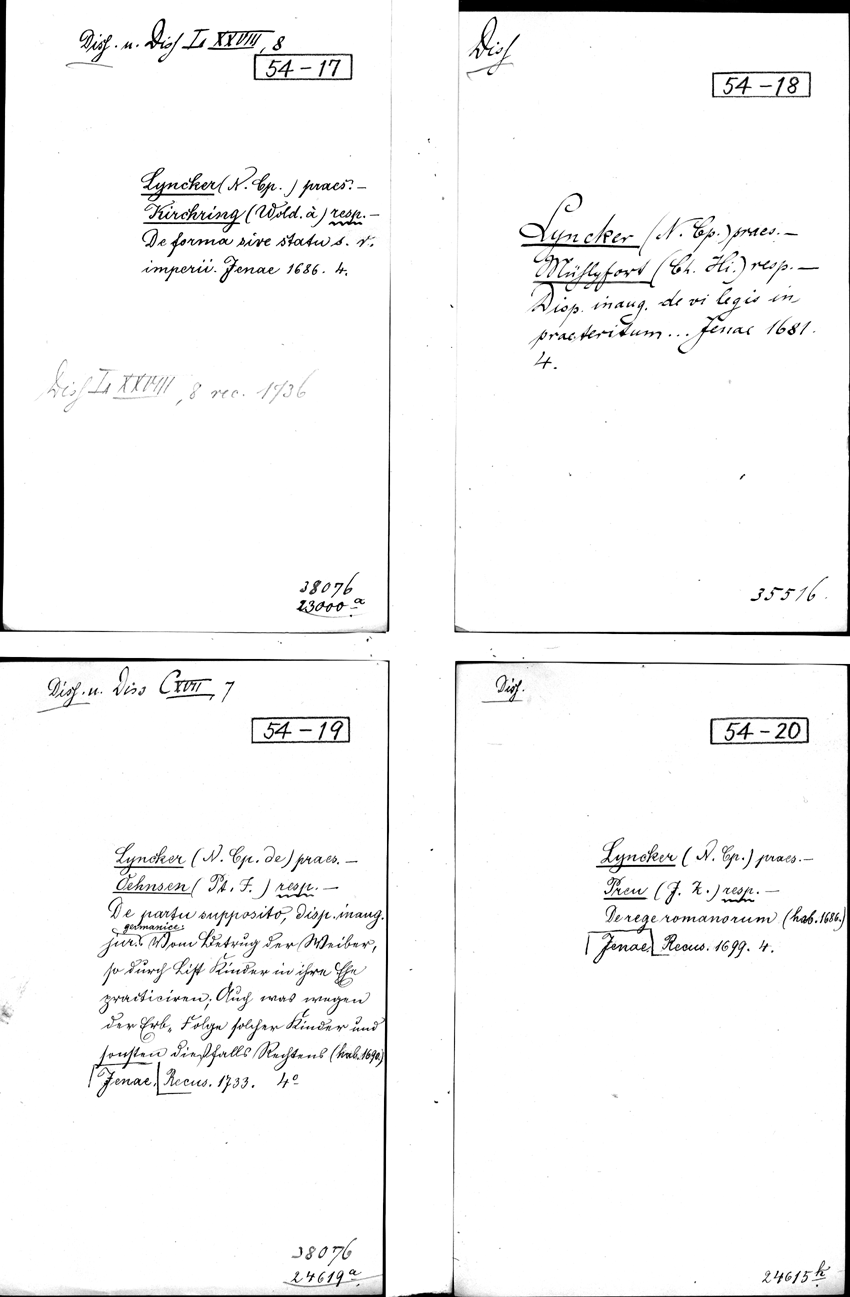 Diss. u. Diss I XXVIII, 8
54-17
Lyncker (N. Cp.) praes. —
Kirchring (Wold. à) resp. —
De forma sive statu s. r.
imperii. Jenae 1686. 4.
Diss I XXVIII, 8 rec. 1736
38076
23000 a
Diss
54-18
Lyncker (N. Cp.) praes. —
Mühlpfort (Ch. Hi.) resp. —
Disp. inaug. de vi legis in
praeteritum... Jenae 1681.
4.
35516.
Diss. u. Diss C XVII, 7
54-19
Lyncker (N. Cp. de) praes. —
Oehnsen (Pt. F.) resp. —
De partu supposito, disp. inaug.
germanice:
jur. Vom Betrug der Weiber,
so durch List Kinder in ihre Ehe
practiciren; Auch was wegen
der Erb-Folge solcher Kinder und
sonsten dießfalls Rechtens (hab. 1690)
Jenae. Recus. 1733. 4°
38076
24619 a
Diss.
54-20
Lyncker (N. Cp.) praes. —
Preu (J. K.) resp. —
De rege romanorum (hab. 1686.)
Jenae. Recus. 1699. 4.
24615 k